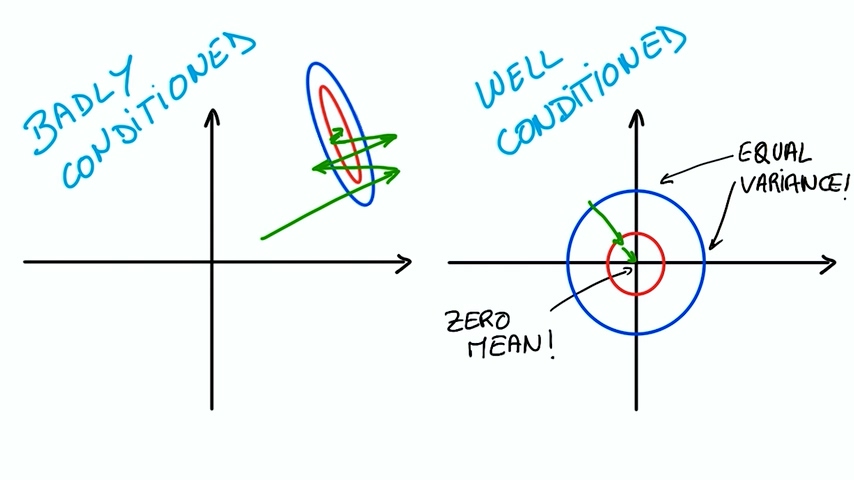 BADLY
CONDiTiONED
WELL
CONDiTiONED
EQUAL
VARIANCE!
ZERO
MEAN!